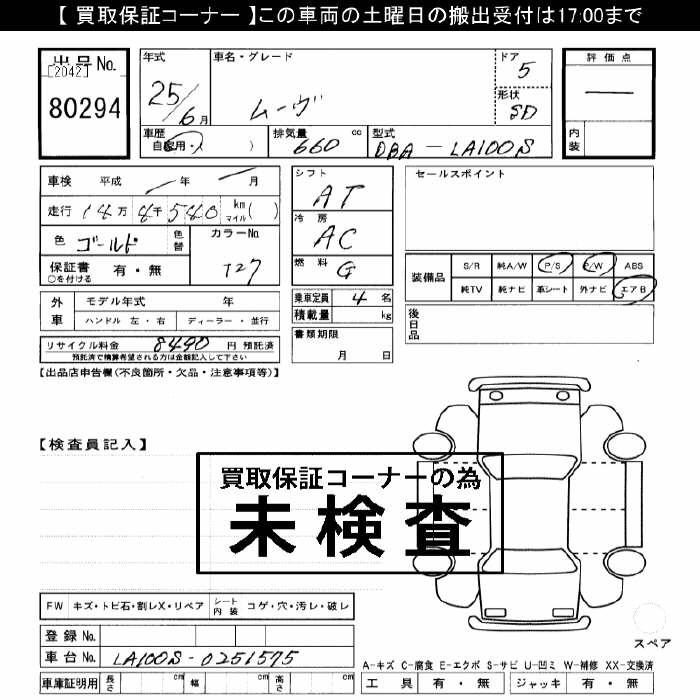 【 買取保証コーナー 】この車両の土曜日の搬出受付は17:00まで
出品No.
[2042]
80294
年式
25/6月
車名・グレード
ムーヴ
ドア
5
形状
5D
評価点
内装
車歴
自家用・
)
排気量
660
cc
型式
DBA-LA100S
車検 平成 年 月
走行 14万 4千540 km マイル( )
色 ゴールド 色替
カラーNo.
T27
保証書 有・無
○を付ける
シフト
AT
冷房
AC
燃料
G
乗車定員 4 名
積載量 kg
書類期限
月 日
セールスポイント
装備品
S/R 純A/W P/S P/W ABS
純TV 純ナビ 革シート 外ナビ エアB
後日品
外車
モデル年式 年
ハンドル 左・右 ディーラー・並行
リサイクル料金 8490 円 預託済
預託済で精算希望される方は金額記入して下さい
【出品店申告欄(不良箇所・欠品・注意事項等)】
【検査員記入】
買取保証コーナーの為
未検査
FW キズ・トビ石・割レX・リペア シート内装 コゲ・穴・汚レ・破レ
登録No.
車台No. LA100S-0251575
車庫証明用 長さ cm 幅 cm 高さ cm
スペア
A-キズ C-腐食 E-エクボ S-サビ U-凹ミ W-補修 XX-交換済
工具 有・無 ジャッキ 有・無